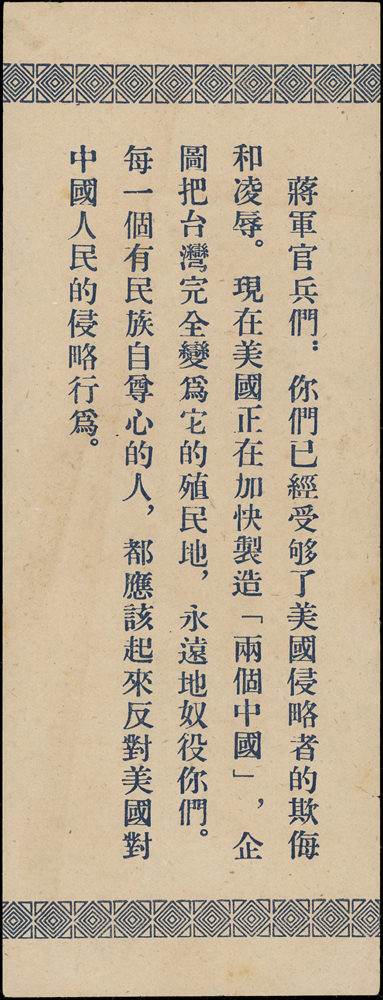 蔣軍官兵們：你們已經受够了美國侵略者的欺侮
和凌辱。現在美國正在加快製造「兩個中國」，企
圖把台灣完全變爲它的殖民地，永遠地奴役你們。
每一個有民族自尊心的人，都應該起來反對美國對
中國人民的侵略行爲。